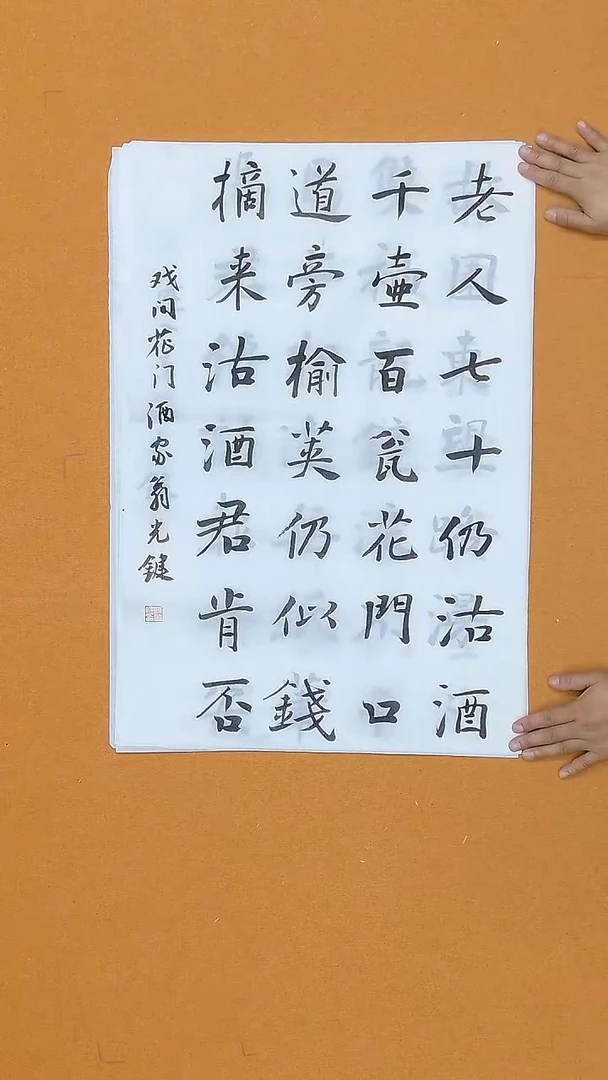 老人七十仍沽酒
千壺百瓮花門口
道旁榆荚仍似錢
摘来沽酒君肯否
戏问花门酒家翁光鍵